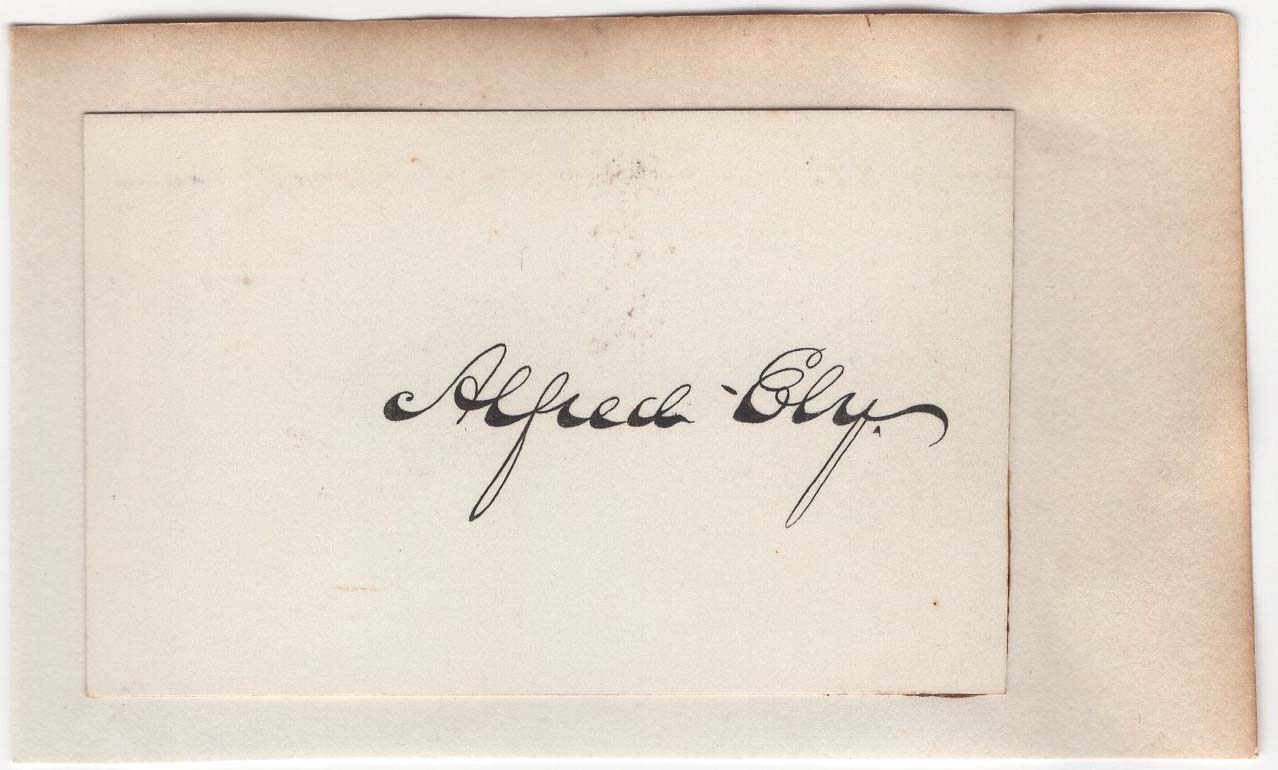 Alfred Ely.